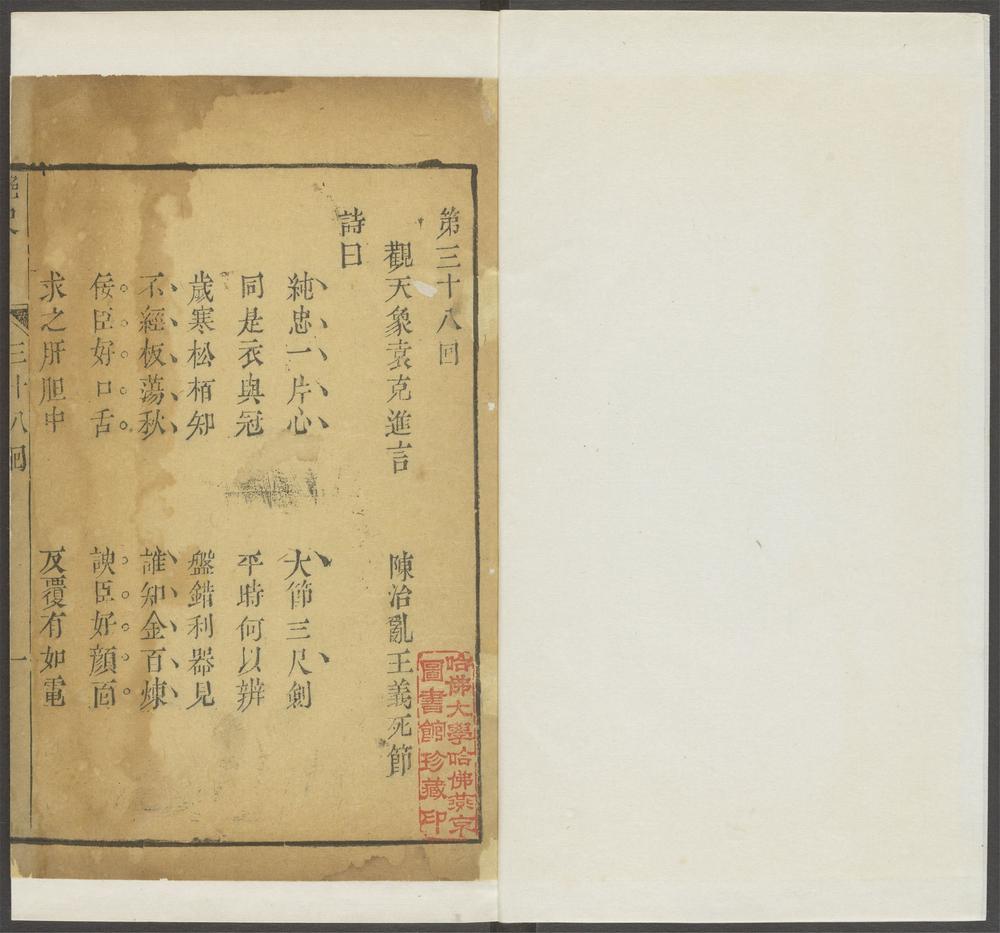 第三十八回
觀天象袁克進言 陳治亂王義死節
詩曰
純忠一片心 大節三尺劍
同是衣與冠 平時何以辨
歲寒松栢知 盤錯利器見
不經板蕩秋 誰知金百煉
佞臣好口舌 諛臣好顏面
求之肝胆中 反覆有如電
艶史
三十八回
一
哈佛大學哈佛燕京
圖書館珍藏印